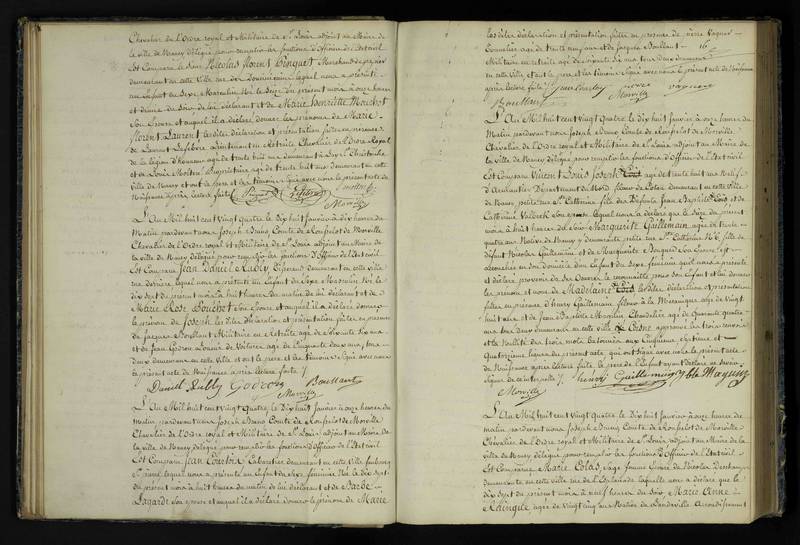 Chevalier de l'Ordre royal et Militaire de St. Louis adjoint au Maire de
la ville de Nancy délégué pour remplir les fonctions d'Officier de l'Etat civil
Est Comparu le Sieur Nicolas Florent Pinguet Marchand
demeurant en cette Ville rue des Dominicains lequel nous a présenté
un Enfant du Sexe Masculin Né le Seize du présent mois à onze heures
et demie du Soir de lui déclarant et de Marie Henriette Mouchot
Son Epouse et auquel il a déclaré donner les prénoms de Marie
Florent Laurent lesdites déclaration et présentation faites en présence
de Laurent Lefebvre Lieutenant en Retraite Chevalier de l'Ordre Royal
de la légion d'Honneur agé de trente huit ans demeurant à
et de Louis propriétaire agé de trente huit ans demeurant en cette
Ville de Nancy et ont le père et les témoins signé avec nous le présent acte de
Naissance après lecture faite
Morville
L'An Mil huit cent vingt quatre le Dix huit Janvier à dix heures du
Matin pardevant nous Joseph Bruno Comte de Rouselot de Morville
Chevalier de l'Ordre royal et Militaire de St. Louis adjoint au Maire de
la ville de Nancy délégué pour remplir les fonctions d'Officier de l'Etat civil
Est Comparu Jean Daniel Lubly demeurant en cette ville
rue derrière lequel nous a présenté un Enfant du Sexe Masculin Né le
dix Sept du présent mois à huit heures du matin de lui déclarant et de
Marie Rose Bouchot Son Epouse et auquel il a déclaré donner
le prénom de Joseph lesdites déclaration et présentation faites en présence
de Jacques Boussard Militaire en Retraite agé de Soixante Six ans
et de Jean Godron Loueur de Voitures agé de Cinquante deux ans, tous
deux demeurans en cette ville et ont le père et les témoins signé avec nous
le présent acte de Naissance après lecture faite
Daniel Lubly Godron Boussard
Morville
L'An Mil huit cent vingt quatre, le Dix huit Janvier à onze heures du
matin pardevant nous Joseph Bruno Comte de Rouselot de Morville
Chevalier de l'Ordre royal et Militaire de St. Louis adjoint au Maire de
la ville de Nancy délégué pour remplir les fonctions d'Officier de l'Etat civil
Est Comparu Jean Courtin Cabaretier demeurant en cette ville faubourg
St. lequel nous a présenté un Enfant du Sexe féminin Né le dix Sept
du présent mois à huit heures du matin de lui déclarant et de Barbe
Lagarde Son épouse et auquel il a déclaré donner le prénom de Marie
lesdites déclaration et présentation faites en présence de Pierre Vagner
Tonnelier agé de trente ans et de Jacques Boussard
Militaire en retraite agé de Soixante Six ans tous deux demeurans
en cette Ville et ont le père et les témoins signé avec nous le présent acte de Naissance
après lecture faite Jean Courtin pierre vagner
Boussard Morville
L'An Mil huit cent vingt Quatre le Dix huit Janvier à onze heures du
Matin pardevant nous Joseph Bruno Comte de Rouselot de Morville
Chevalier de l'Ordre royal et Militaire de St. Louis adjoint au Maire de
la Ville de Nancy délégué pour remplir les fonctions d'Officier de l'Etat civil
Est Comparu Vincent Louis Joseph agé de trente huit ans Natif
d'Armentier Département du Nord fileur de Coton demeurant en cette Ville
de Nancy petite rue St. Catherine fils des Défunts Jean Baptiste et de
Catherine Son épouse lequel nous a déclaré que le Seize du présent
mois à huit heures du Soir Marguerite Guillemain agée de trente
quatre ans Native de Nancy y demeurante petite rue St. Catherine N.o 6 fille de
défunt Nicolas Guillemain et de Marguerite Son épouse est
accouchée en Son domicile d'un Enfant du Sexe féminin qu'il nous a présenté
et déclaré provenir de Ses Oeuvres le reconnaitre pour Son Enfant et lui donner
les prénom et nom de Madelaine lesdites déclaration et présentation
faites en présence d'Henry Guillemain fileur à la Mécanique agé de Vingt
huit ans et de Jean Baptiste Magnin Chandelier agé de Quarante quatre
ans tous deux demeurans en cette ville
et la Nullité des trois mots batonnés aux Cinquieme, Septieme et
Quatorzieme lignes du présent acte, qui ont signé avec nous le présent acte
de Naissance après lecture faite, le père de l'Enfant ayant déclaré ne Savoir
Signer de ce interpellé henry Guillemin J Bte Magnin
Morville
L'An Mil huit cent vingt Quatre le Dix huit Janvier à onze heures du
matin pardevant nous Joseph Bruno Comte de Rouselot de Morville
Chevalier de l'Ordre royal et Militaire de St. Louis adjoint au Maire de la
ville de Nancy délégué pour remplir les fonctions d'Officier de l'Etat civil
Est Comparue Marie Colas, Sage femme Epouse de Nicolas
demeurante en cette ville rue de l'Esplanade laquelle nous a déclaré que le
dix Sept du présent mois à neuf heures du Soir, Marie Anne
agée de Vingt cinq ans Native de